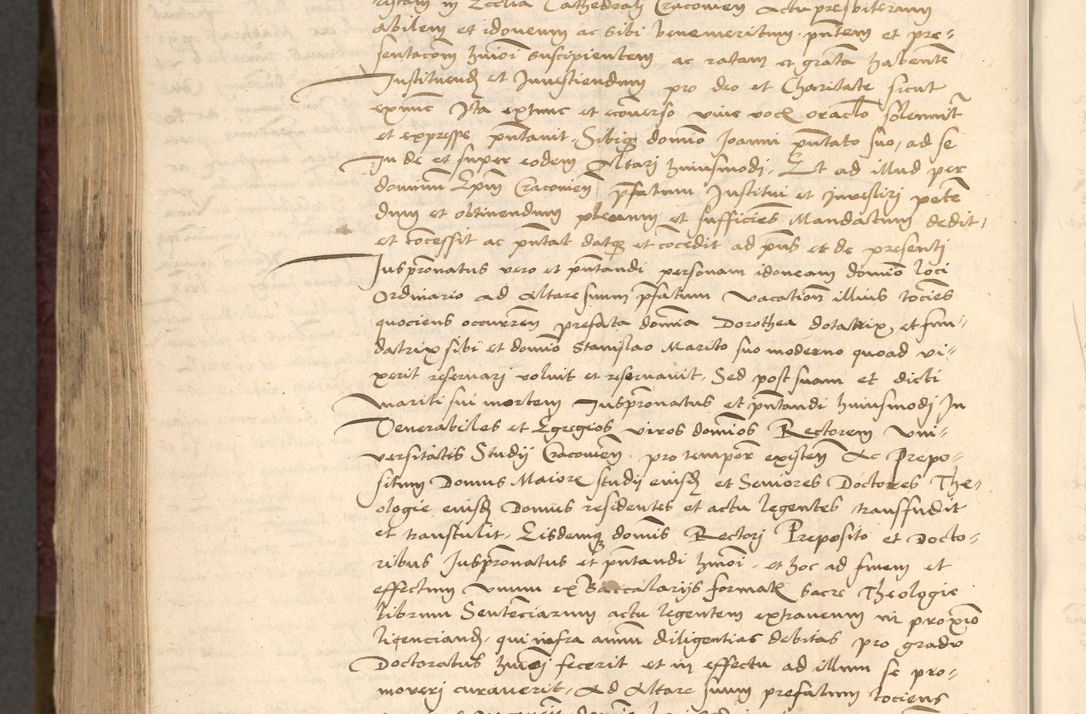 ristam in Ecclia Cathedrali Cracovien Actu presbiterum
abilem et idoneum ac sibi benemeritum pntem et pre-
sentacom hmoi suscipientem ac ratam et gratā habentē
Instituend et Investiendum pro deo et Charitate sicut
exnunc Ita extunc et ecōverso vive vocis oraclo solemnit
et expresse pntavit. Sibiq domino Joanni pntato suo, ad se
In de et super eodem Altari huiusmodi. Et ad illud per
dominum Epm Cracovien pfatum Institui et Investiri peten
dum et obtinendum plenum et sufficies Mandatum dedit,
et cōcessit ac pntat datq et cōcedit ad pns et de presenti
Juspronatus vero et pntandi personam idoneam domino loci
Ordinario ad Altare suum pfatum vacation illius tocies
quociens occurren prefata domina Dorothea dotatrix, et fun-
datrix sibi et domino Stanislao Marito suo moderno quoad vi-
xerit reservari voluit et reservavit. Sed post suam et dicti
mariti sui mortem Juspronatus et pntandi huiusmodi In
Venerabiles et Egregios viros dominos Rectorem Uni-
versitatis Studii Cracovien pro tempore existen Ac Prepo-
situm Domus Maioris studii eiusd et Seniores Doctores The-
ologie eiusd Domus residentes et actu legentes transfudit
et transtulit. Eisdemq dominis Rectori Preposito et Docto-
ribus Juspronatus et pntandi hmoi. et hoc ad finem et
effectum Unum ex Baccalariis format sacre Theologie
librum Sentenciarum actu legentem extraneum in proxio
licenciand, qui infra annum diligentias debitas pro gradu
Doctoratus hmoi fecerit et in effectu ad illum se pro-
moveri curaverit. Ad Altare suum prefatum tociens